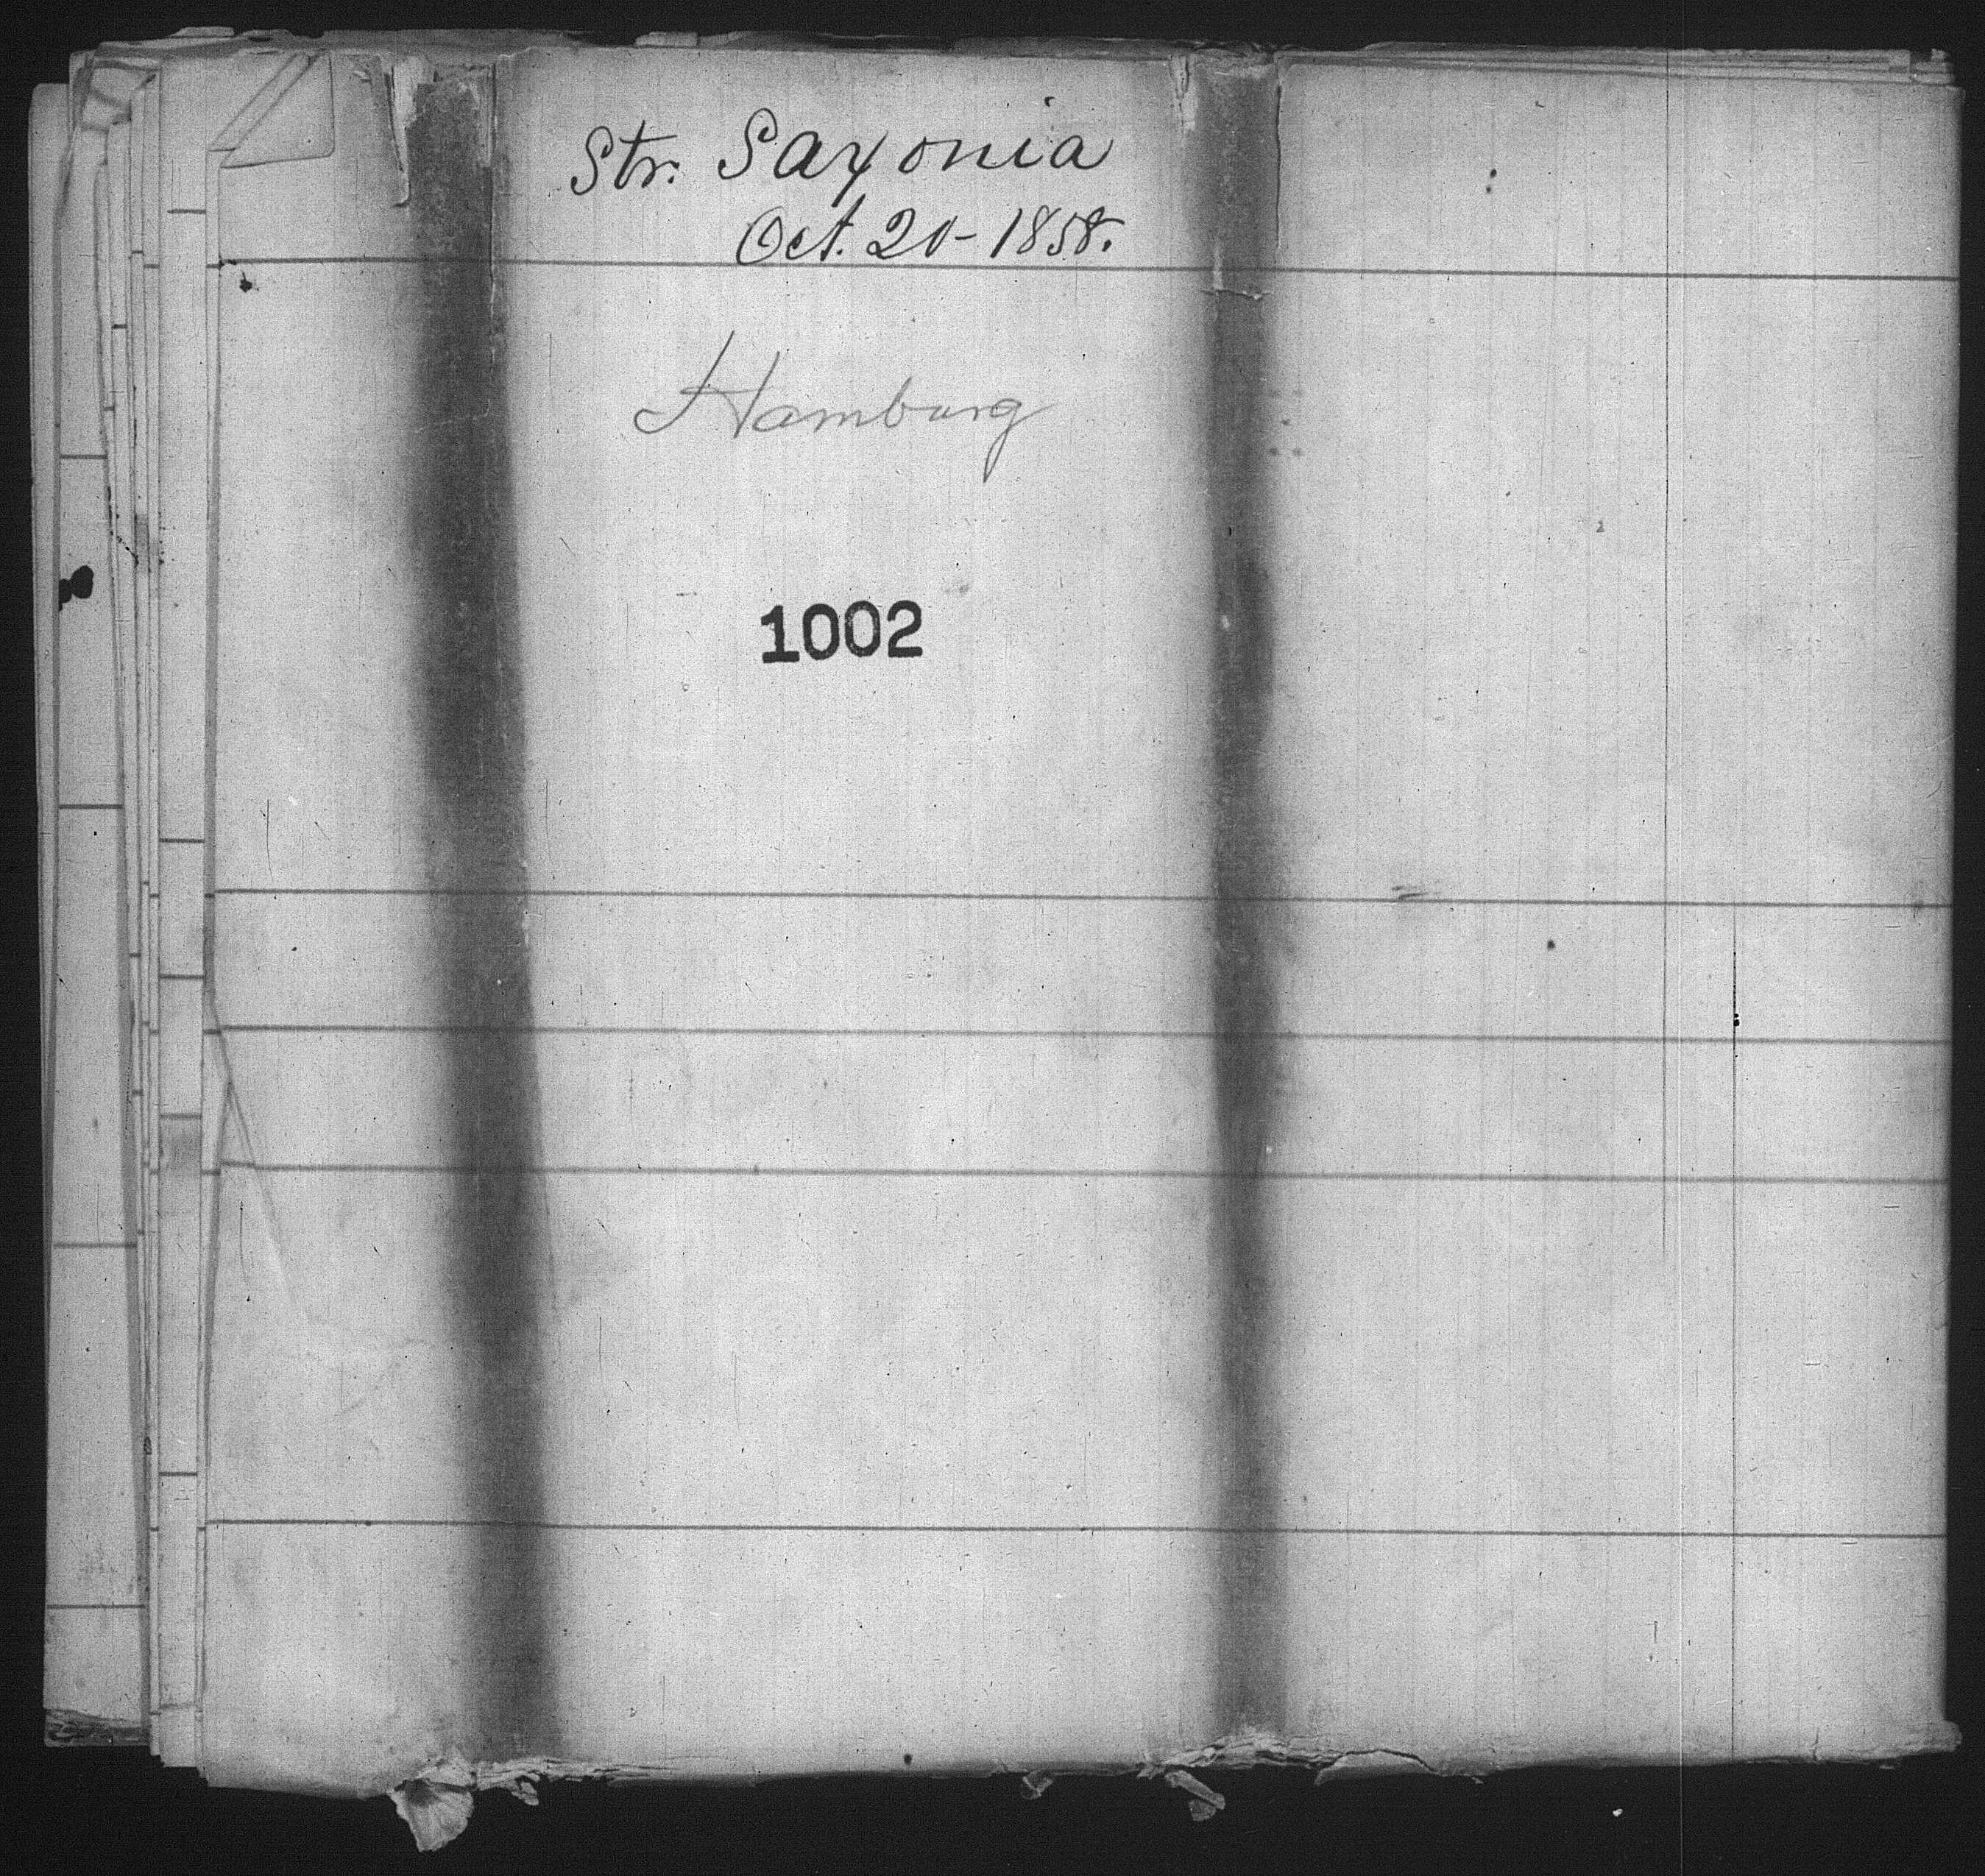 Str. Saxonia
Oct. 20-1858.
Hamburg
1002